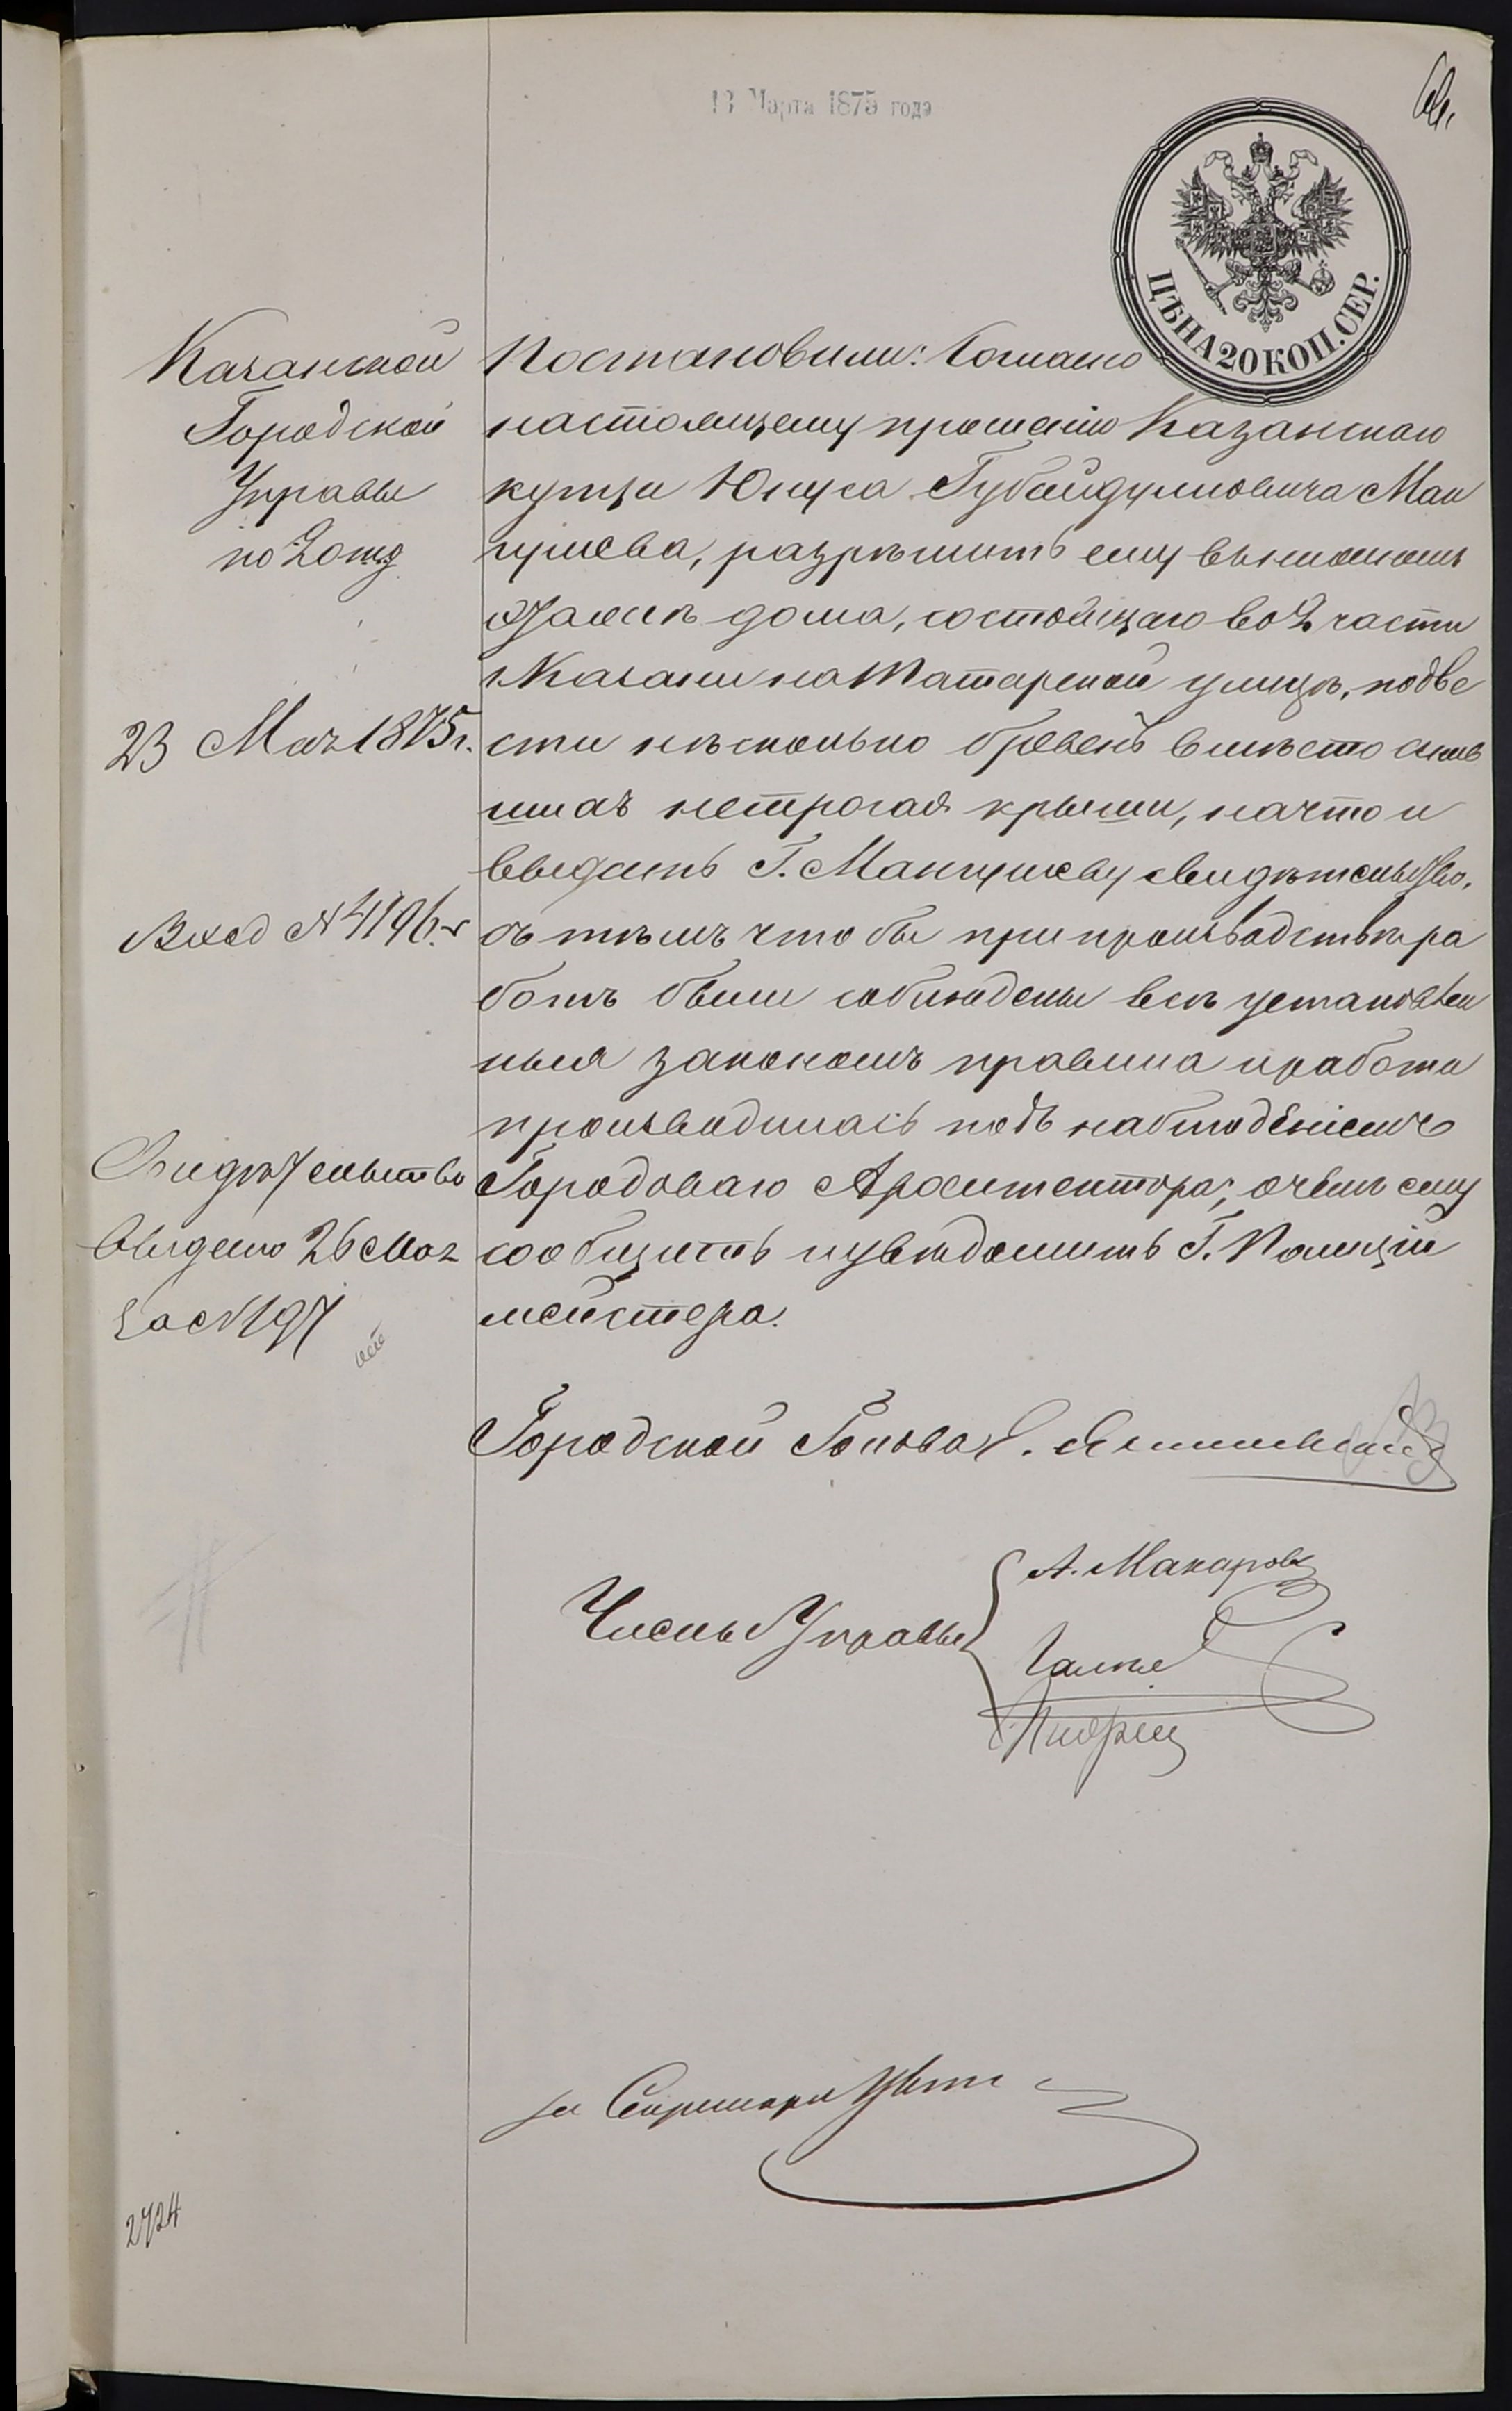 13 Марта 1875 года
ЦѢНА 20 КОП. СЕР.
Казанской
Городской
Управы
по 2 отд
23 Мар 1875 г.
Вход № 4196
Свидѣтельство
выдано 26 Мар
за № 197
Постановили: Согласно
настоящему прошенію Казанскаго
купца Юнуса Губайдулловича Ман
гушева, разрѣшить ему въ
дома, состоящаго во 2 части
г. Казани на Татарской улицѣ, подве
сти нѣсколько бревенъ вмѣсто сгнив
шихъ нетрогая крыши, на что и
выдать Г. Мангушеву свидѣтельство,
съ тѣмъ что бы при производствѣ ра
ботъ были соблюдены всѣ установлен
ныя закономъ правила и работа
производилась подъ наблюденіемъ
Городоваго Архитектора; о чемъ ему
сообщить и увѣдомить Г. Полиціи
мейстера.
Городской Голова
Члены Управы
А. Макаровъ
за Секретаря
2724